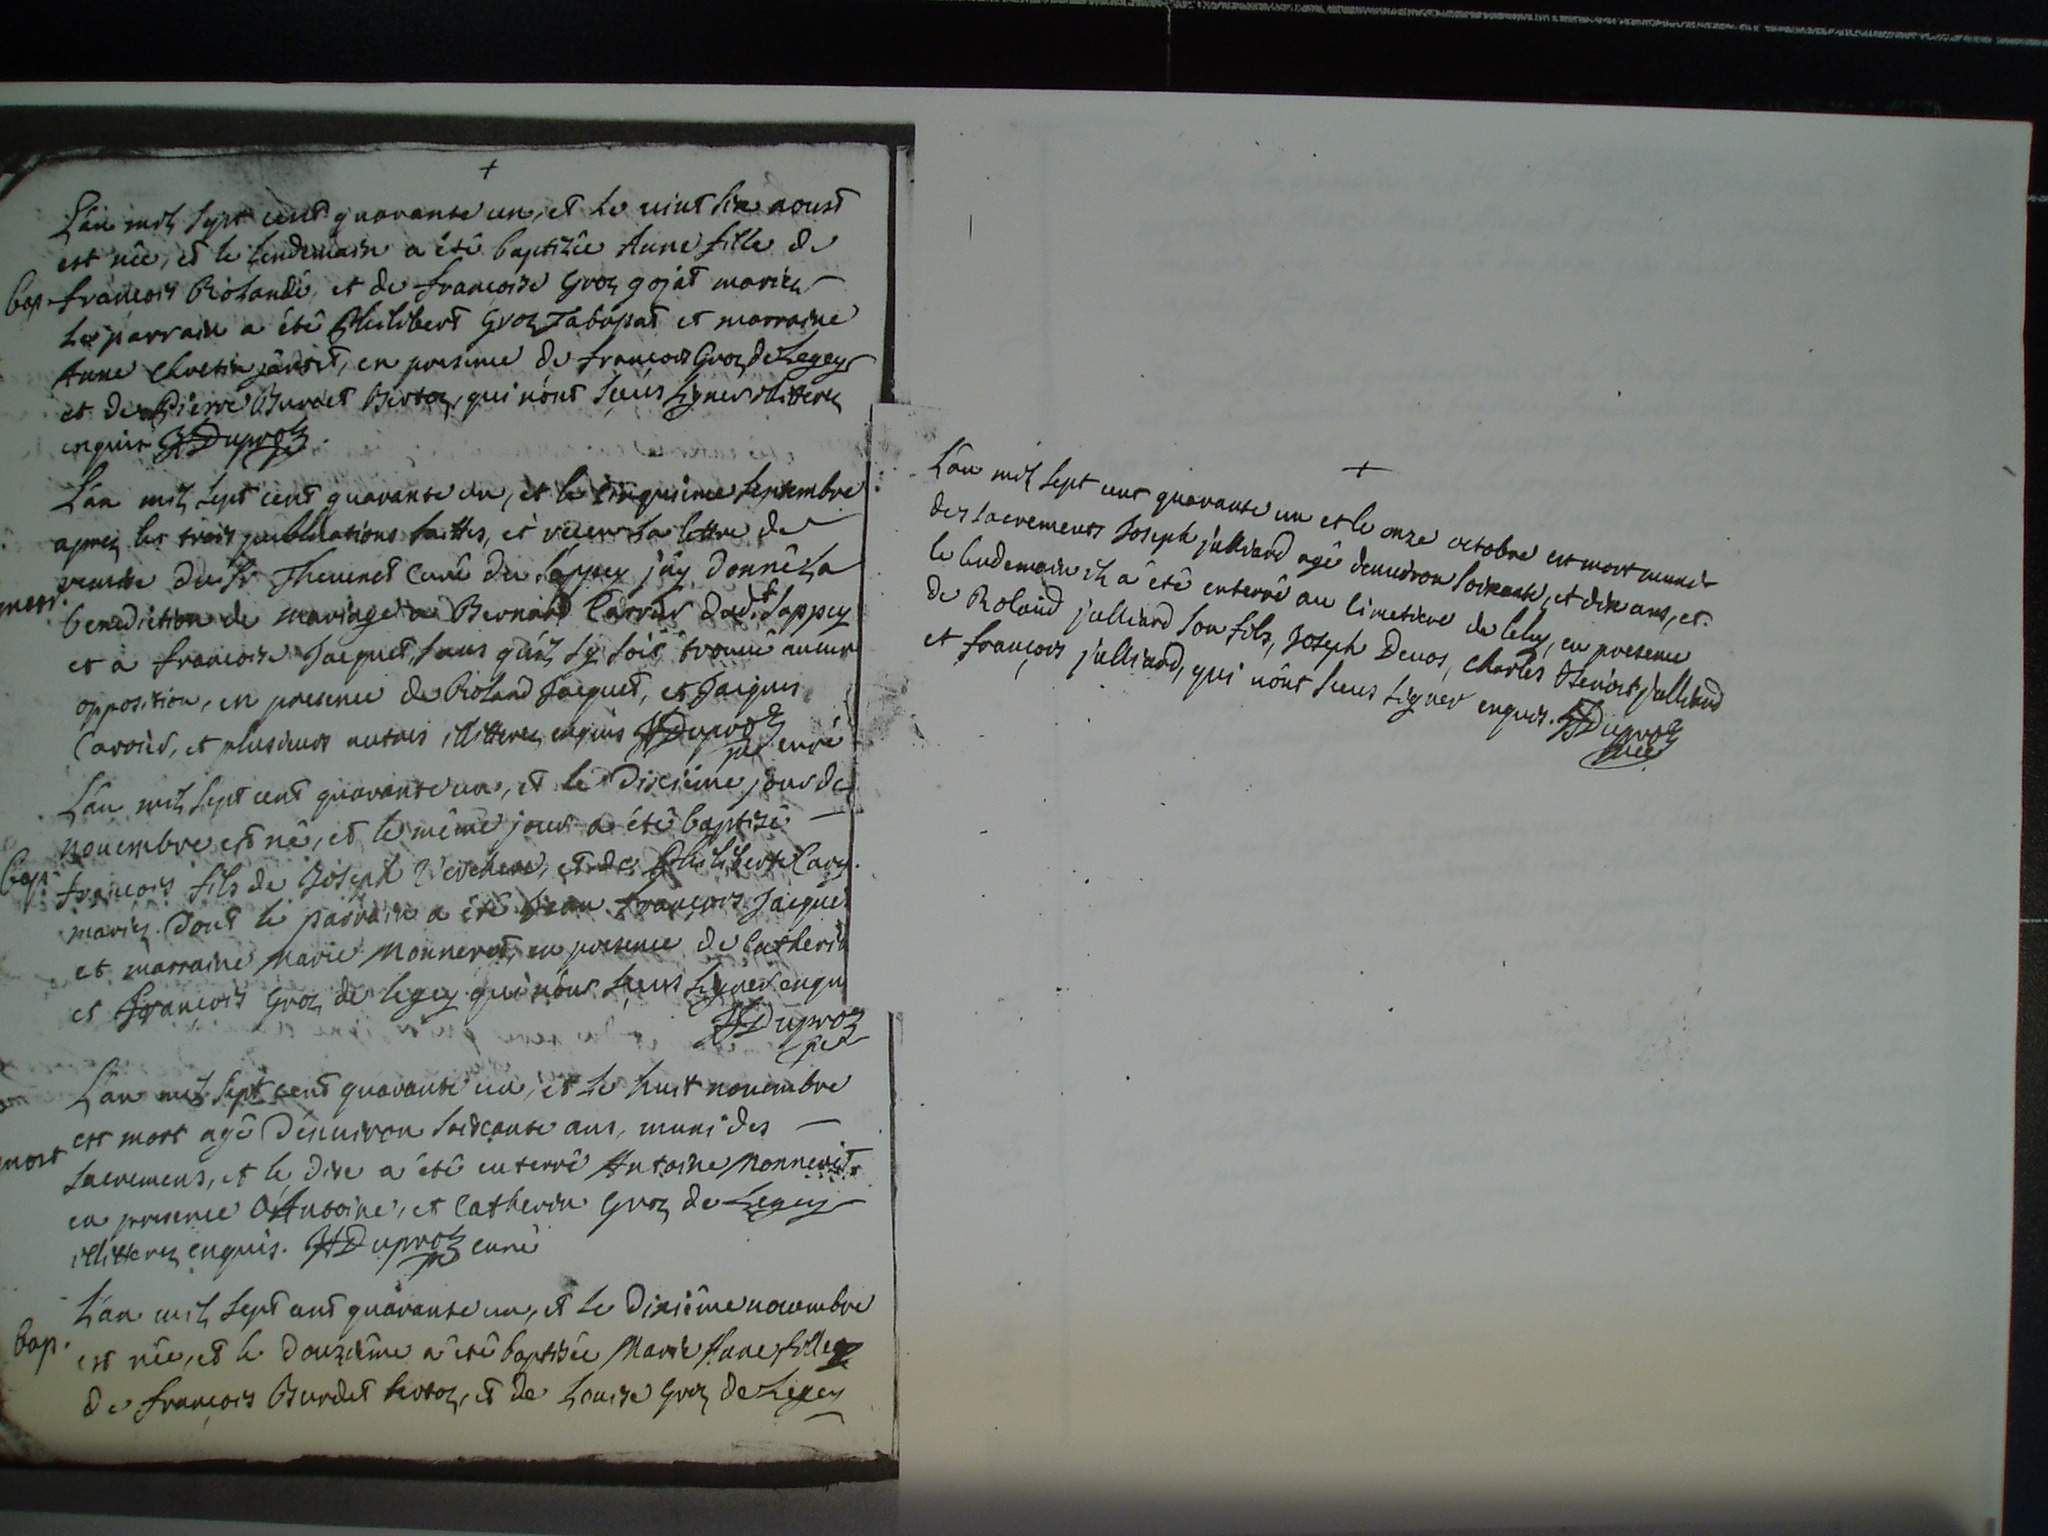 +
L'an mil sept cent quarante un, et le vint six aoust
est née, et le lendemain a été baptizée Anne fille de
bap. françois Rolandé, et de françoise Groz gojat mariez
Le parrain a été Philibert Groz et marraine
Anne Chretin, en presence de françois Groz de Legey
et de Pierre Burdet Bertoz, qui n'ont sceus signer illitterez
enquis HDuproz
L'an mil sept cent quarante un, et le cinquieme septembre
aprez les trois publications faittes, et veüe la lettre de
remise du Sr Thevenet Curé du Sappey j'ay donné la
benediction de mariage a Bernard Carrier dud.t Sappey
et a francoise Jacquet, sans qu'il s'y soit trouvé aucune
opposition, en presence de Roland Jacquet, et Jacques
Carrier, et plusieurs autres illitterez enquis HDuproz
curé
L'an mil sept cent quarante un, et le Dixieme jour de
novembre est né, et le même jour a été baptizé
bap. françois fils de Joseph Verchere, et de Philiberte
mariez. Dont le parrain a été Jean françois Jacque
et marraine Marie Monneret, en presence de Catherin
et François Groz de legey qui n'ont sceus signer enqu
HDuproz
L'an mil sept cent quarante un, et le huit novembre
est mort agé d'environ soixante ans, muni des
mort sacremens, et le dix a été enterré Antoine Monneret
en presence d'Antoine, et Catherin Groz de Legey
illitterez enquis. HDuproz curé
L'an mil sept cent quarante un, et le Dixiême novembre
bap. est née, et le douziême a été baptisée Marie Anne fille
de françois Burdet bertoz, et de Louise Groz de Legey
+
L'an mil sept cent quarante un et le onze octobre est mort muni
des sacrements Joseph julliard agé d'environ soixante, et dix ans, et
le lendemain il a été enterré au cimetiere de lelex, en presence
de Roland julliard son fils, Joseph Devos, Charles Benoist julliard
et françois julliard, qui n'ont sceus signer enquis. HDuproz
curé